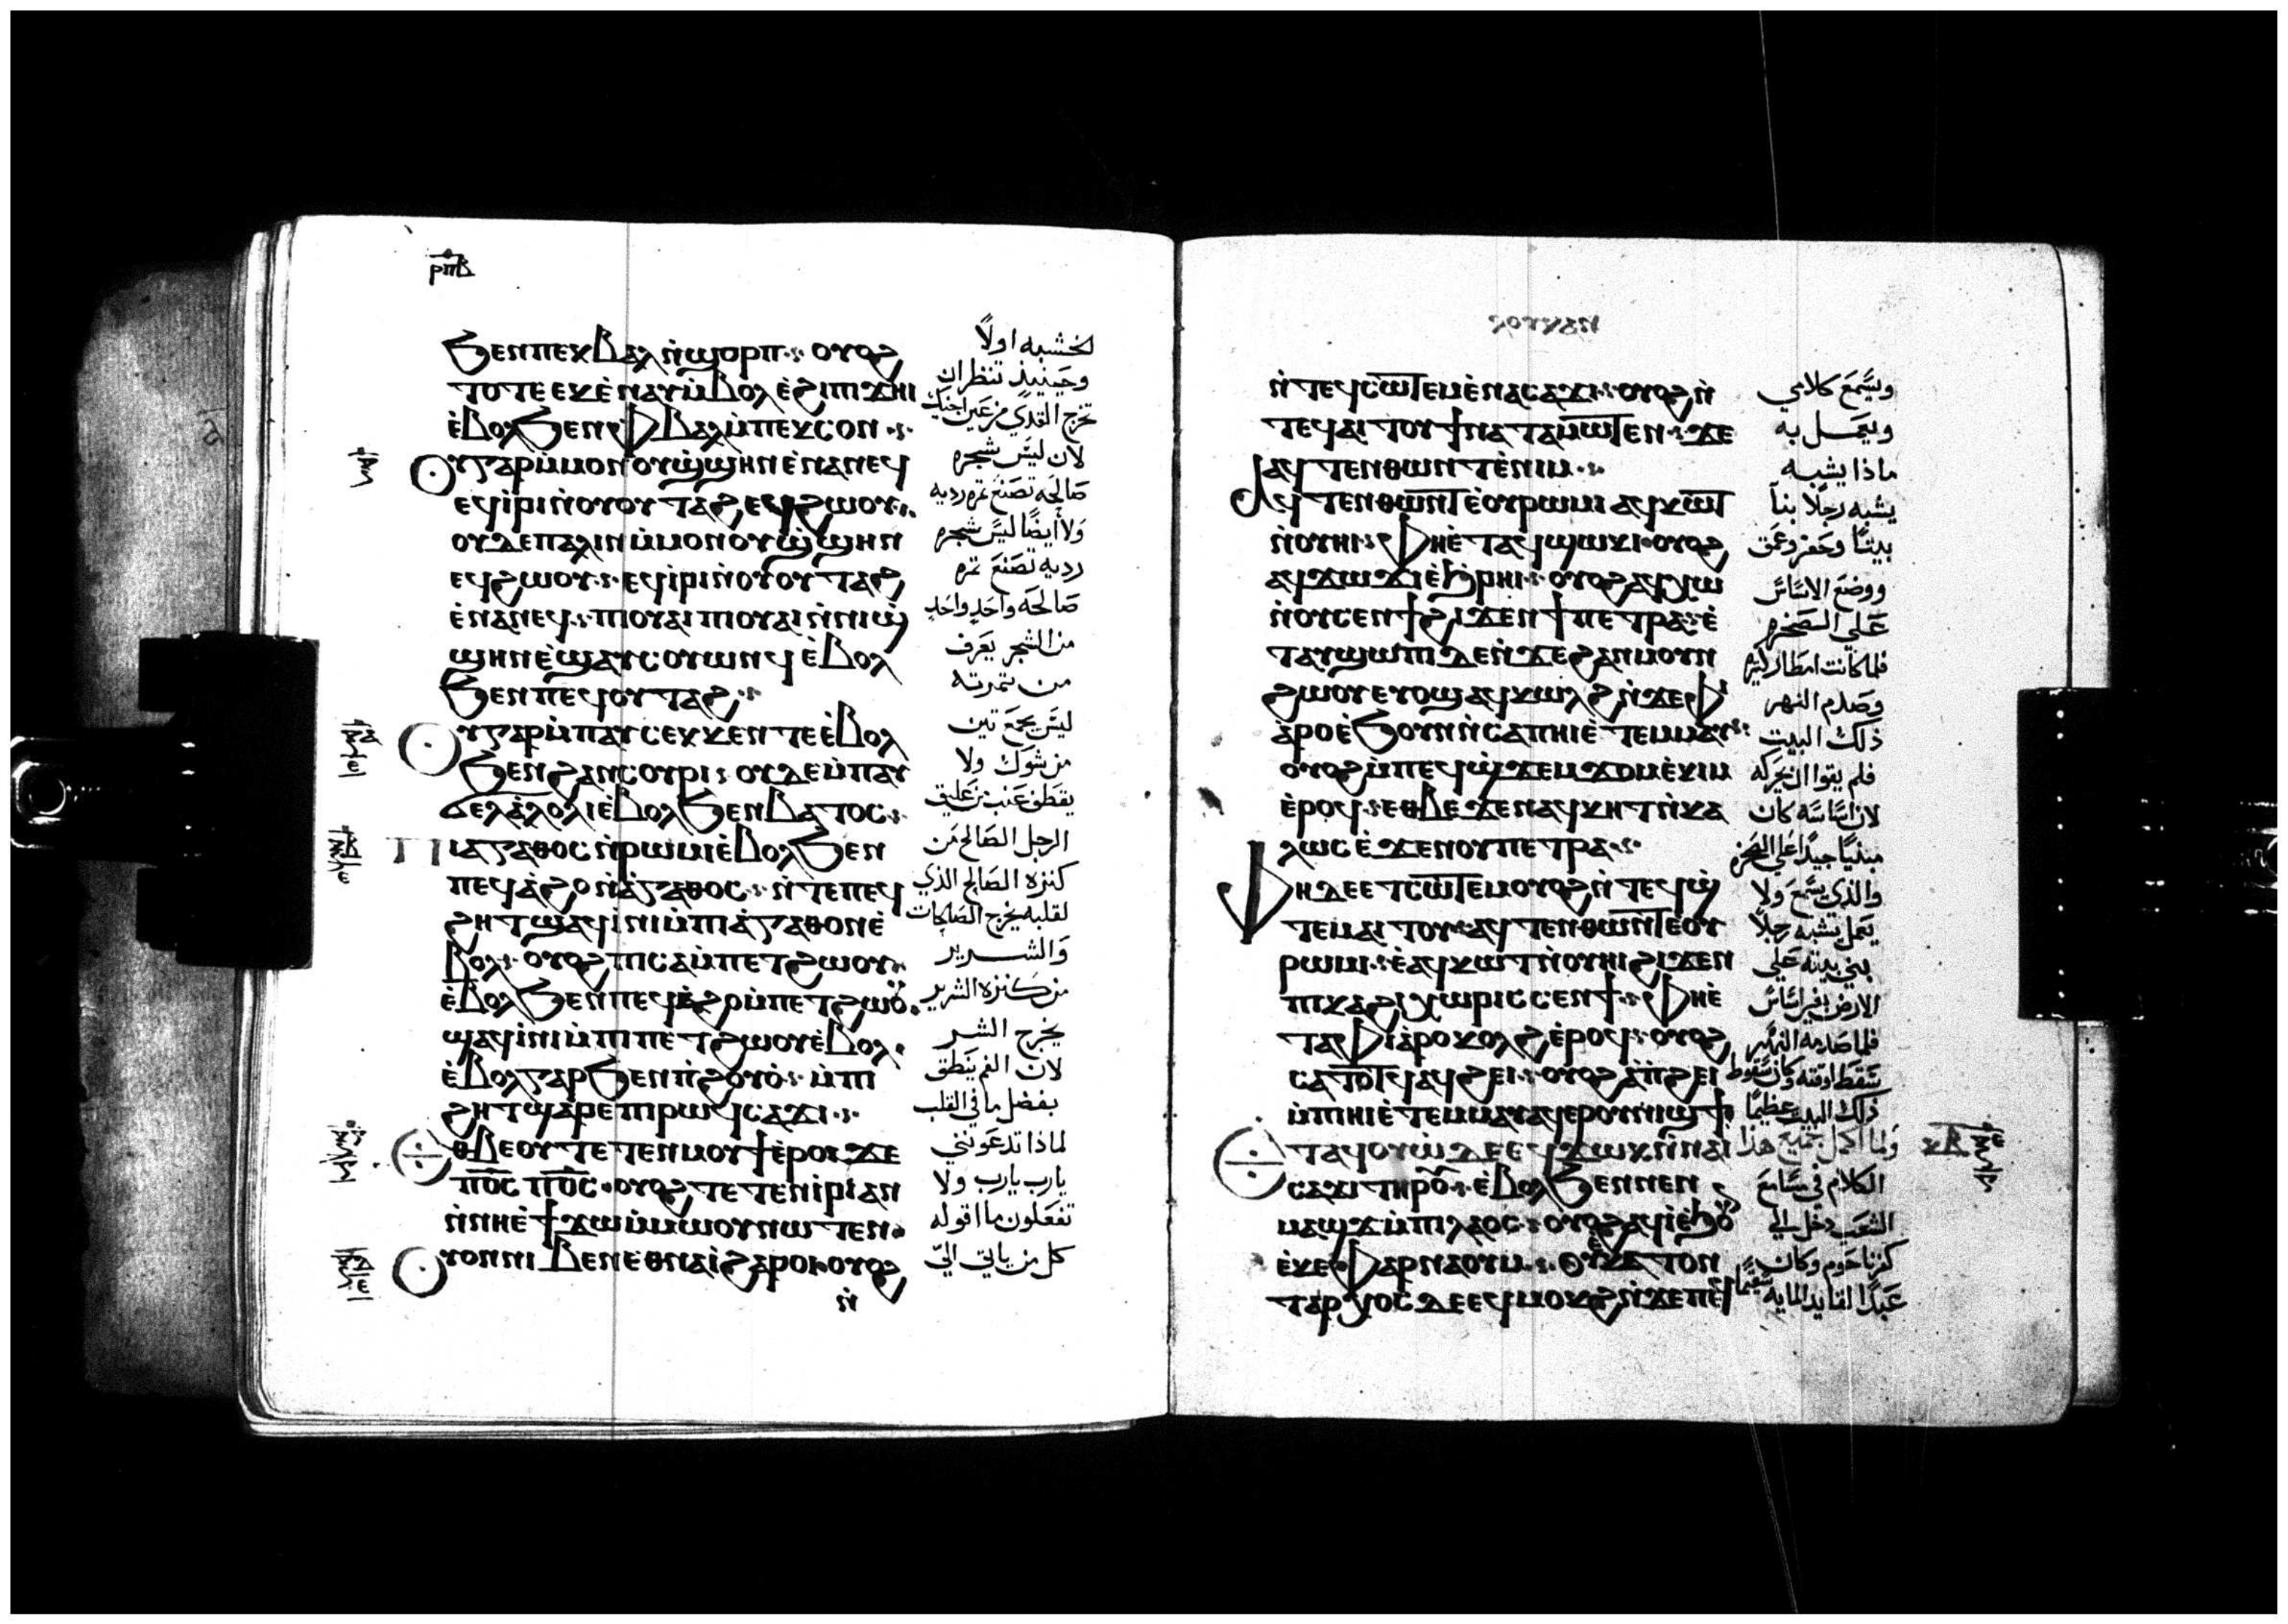 ⲣⲡⲃ
ϧⲉⲛⲡⲉⲕⲃⲁⲗ ⲛ̀ϣⲟⲣⲡ·:· ⲟⲩⲟϩ
ⲧⲟⲧⲉ ⲉⲕⲉ̀ⲛⲁⲩ ⲙ̀ⲃⲟⲗ ⲉ̀ϩⲓⲡⲓϫⲏⲓ
ⲉ̀ⲃⲟⲗϧⲉⲛⲫⲃⲁⲗ ⲙ̀ⲡⲉⲕⲥⲟⲛ·:·
ⲟⲩⲅⲁⲣ ⲙ̀ⲙⲟⲛ ⲟⲩϣ̀ϣⲏⲛ ⲉ̀ⲛⲁⲛⲉϥ
ⲉϥⲓ̀ⲣⲓ ⲛ̀ⲟⲩⲟⲩⲧⲁϩ ⲉϥϩⲱⲟⲩ·:·
ⲟⲩⲇⲉ ⲡⲁⲗⲓⲛ ⲙ̀ⲙⲟⲛ ⲟⲩϣ̀ϣⲏⲛ
ⲉϥϩⲱⲟⲩ·:· ⲉϥⲓ̀ⲣⲓ ⲛ̀ⲟⲩⲟⲩⲧⲁϩ
ⲉ̀ⲛⲁⲛⲉϥ·:· ⲡⲓⲟⲩⲁⲓ ⲡⲓⲟⲩⲁⲓ ⲛ̀ⲛⲓϣ̀
ϣⲏⲛ ⲉ̀ϣⲁⲩⲥⲟⲩⲱⲛϥ ⲉ̀ⲃⲟⲗ
ϧⲉⲛⲡⲉϥⲟⲩⲧⲁϩ·:·
ⲟⲩⲅⲁⲣ ⲙ̀ⲡⲁⲩⲥⲉⲕⲕⲉⲛⲧⲉ ⲉ̀ⲃⲟⲗ
ϧⲉⲛϩⲁⲛⲥⲟⲩⲣⲓ·:· ⲟⲩⲇⲉ ⲙ̀ⲡⲁⲩ
ϭⲉⲗⲁ̀ⲗⲟⲗⲓ ⲉ̀ⲃⲟⲗϧⲉⲛⲃⲁⲧⲟⲥ·:·
ⲡⲓⲁⲅⲁⲑⲟⲥ ⲛ̀ⲣⲱⲙⲓ ⲉ̀ⲃⲟⲗϧⲉⲛ
ⲡⲉϥⲁ̀ϩⲟ ⲛ̀ⲁ̀ⲅⲁⲑⲟⲥ·:· ⲛ̀ⲧⲉⲡⲉϥ
ϩⲏⲧ ϣⲁϥⲓ̀ⲛⲓ ⲙ̀ⲡⲓⲁ̀ⲅⲁⲑⲟⲛ ⲉ̀
ⲃⲟⲗ·:· ⲟⲩⲟϩ ⲡⲓⲥⲁⲙ̀ⲡⲉⲧϩⲱⲟⲩ·:·
ⲉ̀ⲃⲟⲗϧⲉⲛⲡⲉϥⲁ̀ϩⲟ ⲙ̀ⲡⲉⲧϩⲱⲟⲩ·
ϣⲁϥⲓ̀ⲛⲓ ⲙ̀ⲡⲓⲡⲉⲧϩⲱⲟⲩ ⲉ̀ⲃⲟⲗ·
ⲉ̀ⲃⲟⲗⲅⲁⲣ ϧⲉⲛⲡ̀ϩⲟⲩⲟ̀·:· ⲙ̀ⲡⲓ
ϩⲏⲧ ϣⲁⲣⲉⲡⲓⲣⲱϥ ⲥⲁϫⲓ·:·
ⲉⲑⲃⲉⲟⲩ ⲧⲉⲧⲉⲛⲙⲟⲩϯ ⲉ̀ⲣⲟⲓ ϫⲉ
ⲡⲟ̅ⲥ̅ ⲡⲟ̅ⲥ̅· ⲟⲩⲟϩ ⲧⲉⲧⲉⲛⲓ̀ⲣⲓ ⲁⲛ
ⲛ̀ⲛⲏⲉ̀ϯϫⲱ ⲙ̀ⲙⲱⲟⲩ ⲛⲱⲧⲉⲛ·
ⲟⲩⲟⲛ ⲛⲓⲃⲉⲛ ⲉⲑⲛⲁⲓ̀ ϩⲁⲣⲟⲓ· ⲟⲩⲟϩ
ⲛ̀
الخشبه اولاً
وحينيذ تنظر ان
تخرج القذي من عين اخيك
لان ليس شجره
صالحه تصنع ثمره رديه
ولا أيضًا ليس شجره
رديه تصنع ثمره
صالحه واحد واحد
من الشجر يعرف
من ثمرته
ليس يجمع تين
من شوك ولا
يقطف عنب من عليق
الرجل الصالح من
كنزه الصالح الذي
لقلبه يخرج الصالحات
والشرير
من كنزه الشرير
يخرج الشر
لان الفم ينطق
بفضل ما في القلب
لماذا تدعونني
يارب يارب ولا
تفعلون ما اقوله
كل من ياتي اليّ
ⲛ̀ⲧⲉϥⲥⲱⲧⲉⲙ ⲉ̀ⲛⲁⲥⲁϫⲓ·:· ⲟⲩⲟϩ ⲛ̀
ⲧⲉϥⲁⲓⲧⲟⲩ ϯⲛⲁⲧⲁⲙⲱⲧⲉⲛ·:· ϫⲉ
ⲁϥⲧⲉⲛⲑⲱⲛⲧ ⲉ̀ⲛⲓⲙ·:·
ⲁϥⲧⲉⲛⲑⲱⲛⲧ ⲉ̀ⲟⲩⲣⲱⲙⲓ ⲁϥⲕⲱⲧ
ⲛ̀ⲟⲩⲏⲓ·:· ⲫⲏⲉ̀ⲧⲁϥϣⲱⲕⲓ· ⲟⲩⲟϩ
ⲁϥϫⲱϫⲓ ⲉ̀ϧ̀ⲣⲏⲓ·:· ⲟⲩⲟϩ ⲁϥⲭⲱ
ⲛ̀ⲟⲩⲥⲉⲛϯ ϩⲓϫⲉⲛϯⲡⲉⲧⲣⲁ·:· ⲉ̀
ⲧⲁⲩϣⲱⲡⲓ ⲇⲉ ⲛ̀ϫⲉϩⲁⲛⲙⲟⲩⲛ
ϩⲱⲟⲩ ⲉⲩⲟϣ ⲁϥⲕⲱⲗϩ ⲛ̀ϫⲉⲫ
ⲓⲁⲣⲟ ⲉ̀ϧⲟⲩⲛ ⲛ̀ⲥⲁⲡⲓⲏⲓ ⲉ̀ⲧⲉⲙⲙⲁⲩ·:·
ⲟⲩⲟϩ ⲙ̀ⲡⲉϥϣ̀ϫⲉⲙϫⲟⲙ ⲉ̀ⲕⲓⲙ
ⲉ̀ⲣⲟϥ·:· ⲉⲑⲃⲉ ϫⲉ ⲛⲁϥⲕⲏⲧ ⲛ̀ⲕⲁ
ⲗⲱⲥ ⲉ̀ϫⲉⲛⲟⲩⲡⲉⲧⲣⲁ·:·
ⲫⲏ ⲇⲉ ⲉⲧⲥⲱⲧⲉⲙ ⲟⲩⲟϩ ⲛ̀ⲧⲉϥϣ̀
ⲧⲉⲙⲁⲓⲧⲟⲩ· ⲁϥⲧⲉⲛⲑⲱⲛⲧ ⲉ̀ⲟⲩ
ⲣⲱⲙⲓ·:· ⲉ̀ⲁϥⲕⲱⲧ ⲛ̀ⲟⲩⲏⲓ ϩⲓϫⲉⲛ
ⲡⲓⲕⲁϩⲓ ⲭⲱⲣⲓⲥ ⲥⲉⲛϯ·:· ⲫⲏⲉ̀
ⲧⲁⲫⲓⲁ̀ⲣⲟ ⲕⲟⲗϩ ⲉ̀ⲣⲟϥ·:· ⲟⲩⲟϩ
ⲥⲁⲧⲟⲧϥ ⲁϥϩⲉⲓ·:· ⲟⲩⲟϩ ⲁ̀ⲡ̀ϩⲉⲓ
ⲙ̀ⲡⲓⲏⲓ ⲉ̀ⲧⲉⲙⲙⲁⲩ ⲁϥⲉⲣⲟⲩⲛⲓϣϯ
ⲉⲧⲁϥⲟⲩⲱ̀ ⲇⲉ ⲉϥϫⲱⲕ ⲛ̀ⲛⲁⲓ
ⲥⲁϫⲓ ⲧⲏⲣⲟⲩ·:· ⲉ̀ⲃⲟⲗϧⲉⲛⲛⲉⲛ
ⲙⲁϣϫ ⲙ̀ⲡⲓⲗⲁⲟⲥ·:· ⲟⲩⲟϩ ⲁϥⲓ̀ ⲉ̀ϧⲟⲩⲛ
ⲉ̀ⲕⲉⲫⲁⲣⲛⲁⲟⲩⲙ·:· ⲟⲩⲉⲕⲁⲧⲟⲛ
ⲧⲁⲣⲭⲟⲥ ⲇⲉ ⲉϥⲙⲟⲕϩ ⲛ̀ϫⲉⲡⲉϥ
ويسمع كلامي
ويعمل به
ماذا يشبه
يشبه رجلاً بنا
بيتًا وحفر وعمق
ووضع الاساس
علي الصخره
فلما كانت امطار كثيره
وصدم النهر
ذلك البيت
فلم يقوا ان يحركه
لان اساسه كان
مبنيًا جيدًا علي الصخره
والذي يسمع ولا
يعمل يشبه رجلاً
بني بيته علي
الارض بغير اساس
فلما صدمه النهر
سقط لوقته وكان سقوط
ذلك البيت عظيمًا
ولما اكمل جميع هذا
الكلام في مسامع
الشعب دخل الي
كفرناحوم وكان
عبدًا لقايد المايه سقيمًا
ⲕⲃ